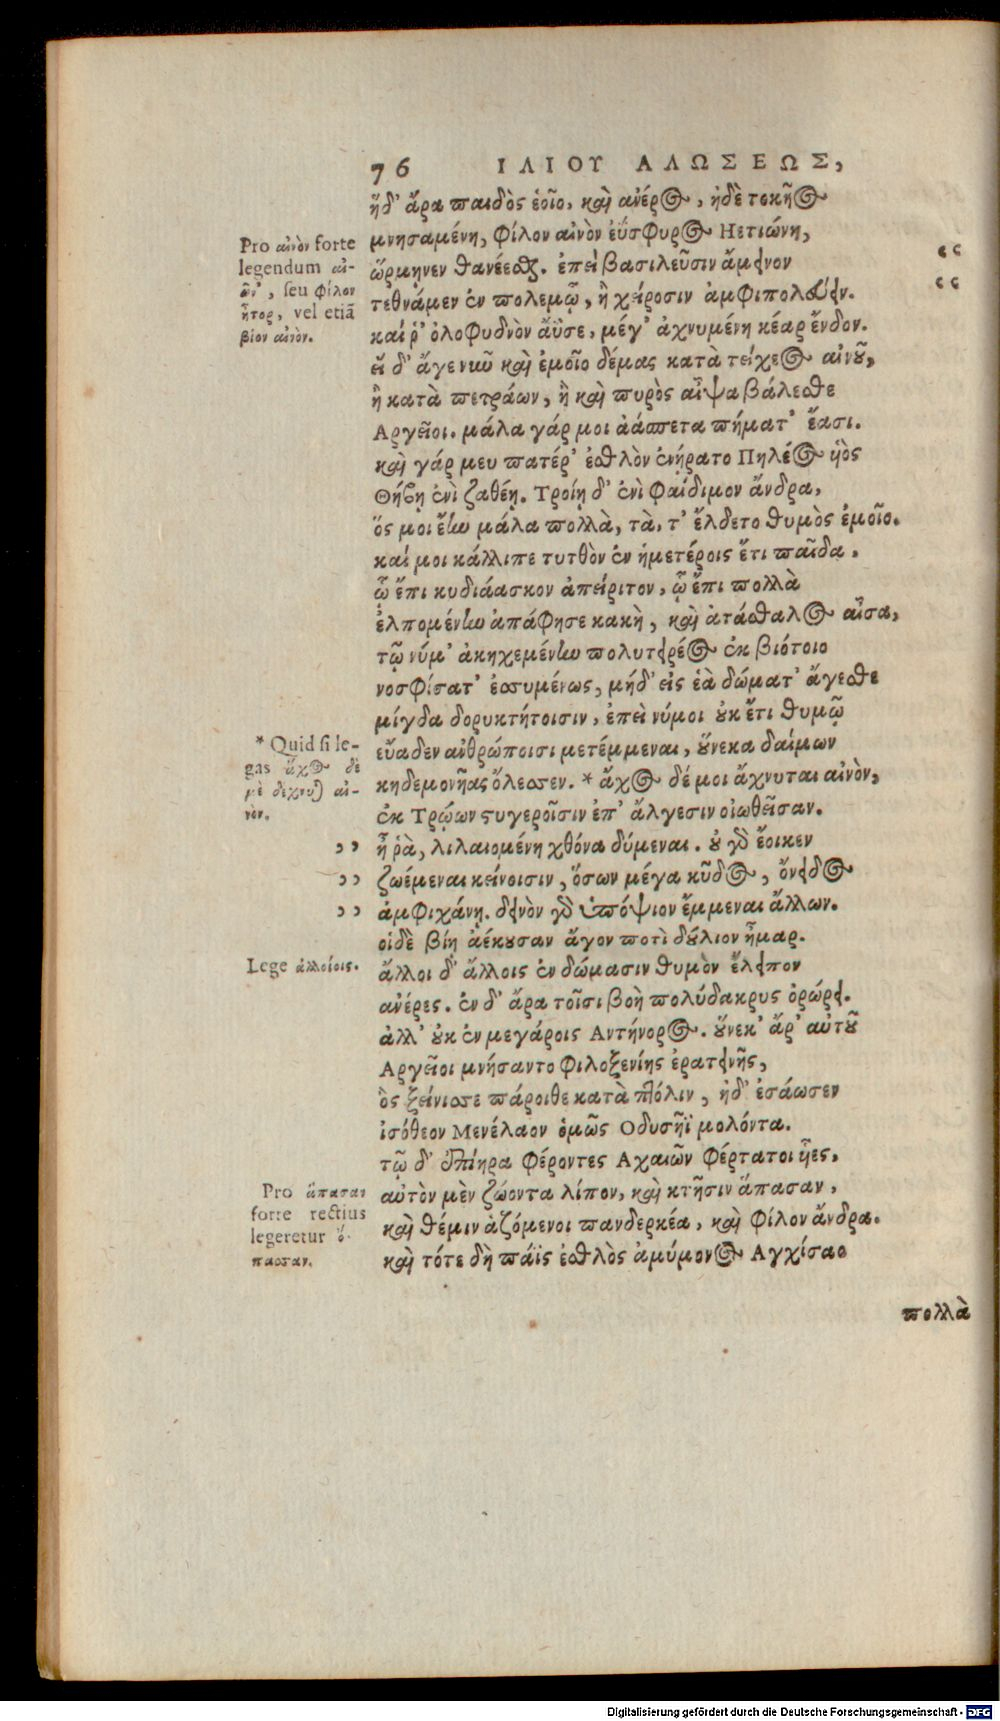 76 ΙΛΙΟΥ ΑΛΩΣΕΩΣ,
ἠδ᾽ ἄρα παιδὸς ἑοῖο, καὶ ἀνέρος, ἠδὲ τοκῆος
μνησαμένη, φίλον αἰνὸν ἐΰσφυρος Ηετιώνη,
ὥρμηνεν θανέεσθαι. ἐπεὶ βασιλεῦσιν ἄμεινον
“
τεθνάμεν ἐν πολεμῳ, ἢ χείροσιν ἀμφιπολεύειν.
“
καί ῥ᾽ ὀλοφυδνὸν ἄϋσε, μέγ᾽ ἀχνυμένη κέαρ ἔνδον.
εἰ δ᾽ ἄγε νιῦ καὶ ἐμοῖο δέμας κατὰ τείχεος αἰνοῦ,
ἢ κατὰ πετράων, ἢ καὶ πυρὸς αἶψα βάλεσθε
Αργεῖοι. μάλα γάρ μοι ἀάσπετα πήματ᾽ ἔασι.
καὶ γάρ μευ πατέρ᾽ ἐσθλὸν ἐνήρατο Πηλέος υἱὸς
Θήβῃ ἐνὶ ζαθέῃ. Τροίῃ δ᾽ ἐνὶ φαίδιμον ἄνδρα,
ὅς μοι ἔην μάλα πολλὰ, τὰ, τ᾽ ἔλδετο θυμὸς ἐμοῖο.
καί μοι κάλλιπε τυτθὸν ἐν ἡμετέροις ἔτι παῖδα,
ᾧ ἔπι κυδιάασκον ἀπείριτον, ᾧ ἔπι πολλὰ
ἐλπομένην ἀπάφησε κακὴ, καὶ ἀτάσθαλος αἶσα,
τῷ νύμ᾽ ἀκηχεμένην πολυτειρέος ἐκ βιότοιο
νοσφίσατ᾽ ἐσσυμένως, μήδ᾽ εἰς ἑὰ δώματ᾽ ἄγεσθε
μίγδα δορυκτήτοισιν, ἐπεὶ νύμοι οὐκ ἔτι θυμῷ
εὔαδεν ἀνθρώποισι μετέμμεναι, οὕνεκα δαίμων
κηδεμονῆας ὄλεσσεν. * ἄχος δέ μοι ἄχνυται αἰνὸν,
ἐκ Τρώων στυγεροῖσιν ἐπ᾽ ἄλγεσιν οἰωθεῖσαν.
,, ἦ ῥὰ, λιλαιομένη χθόνα δύμεναι. οὐ γὰρ ἔοικεν
,, ζωέμεναι κείνοισιν, ὅσων μέγα κῦδος, ὄνειδος
,, ἀμφιχάνῃ. δεινὸν γὰρ ὑπόψιον ἔμμεναι ἄλλων.
οἱδὲ βίῃ ἀέκουσαν ἄγον ποτὶ δούλιον ἦμαρ.
ἄλλοι δ᾽ ἄλλοις ἐν δώμασιν θυμὸν ἔλειπον
ἀνέρες. ἐν δ᾽ ἄρα τοῖσι βοὴ πολύδακρυς ὀρώρει.
ἀλλ᾽ οὐκ ἐν μεγάροις Αντήνορος. οὕνεκ᾽ ἄρ᾽ αὐτοῦ
Αργεῖοι μνήσαντο φιλοξενίης ἐρατεινῆς,
ὃς ξείνισσε πάροιθε κατὰ πτόλιν, ἠδ᾽ ἐσάωσεν
ἰσόθεον Μενέλαον ὁμῶς Οδυσῆϊ μολόντα.
τῷ δ᾽ ἐπίηρα φέροντες Αχαιῶν φέρτατοι υἷες,
αὐτὸν μὲν ζώοντα λίπον, καὶ κτῆσιν ἅπασαν,
καὶ θέμιν ἁζόμενοι πανδερκέα, καὶ φίλον ἄνδρα.
καὶ τότε δὴ πάϊς ἐσθλὸς ἀμύμονος Αγχίσαο
πολλὰ
Pro αἰνὸν forte
legendum αἰ-
ῶν᾽, seu φίλον
ἦτορ, vel etiã
βίον αἰνὸν.
* Quid si le-
gas ἄχος δὲ
με δέχνυται αἰ-
νὸν.
Lege ἀλλοίοις.
Pro ἅπασαν
forte rectius
legeretur ὅ-
πασσαν.
Digitalisierung gefördert durch die Deutsche Forschungsgemeinschaft - DFG